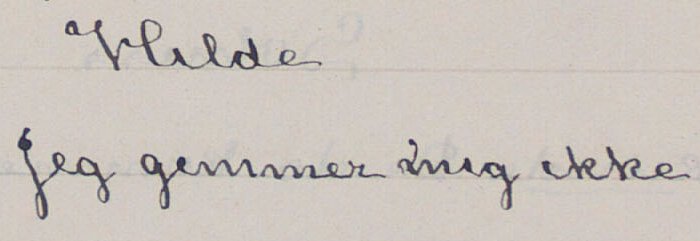 Hilde
Jeg gemmer mig ikke